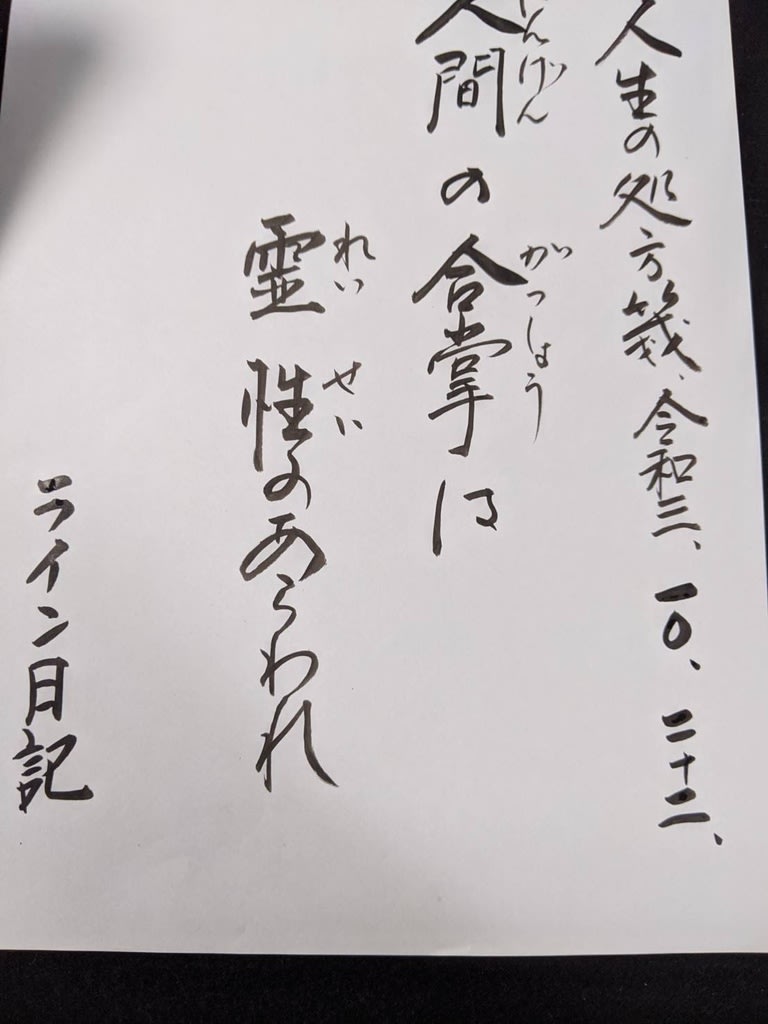 人生の処方箋、令和三、一〇、二十二、
にんげん がっしょう
人間の合掌は
れい せい
霊性のあらわれ
ライン日記